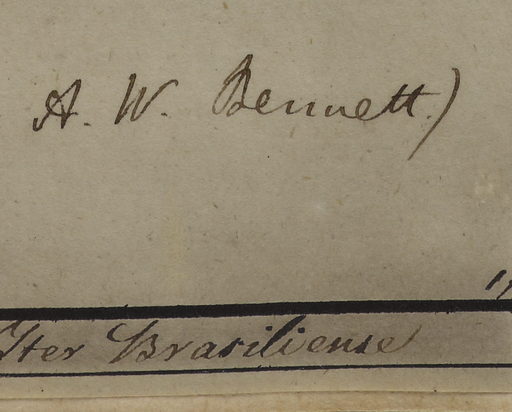 A. W. Bennett.)
Iter Brasiliense